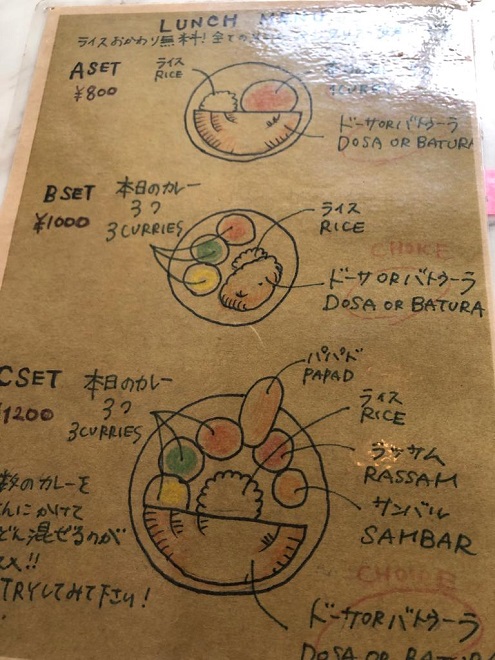 LUNCH MENU
ライスおかわり無料! 全ての
A SET
¥800
ライス
RICE
ドーサORバトゥーラ
DOSA OR BATURA
B SET
¥1000
本日のカレー
3つ
3CURRIES
ライス
RICE
CHOICE
ドーサORバトゥーラ
DOSA OR BATURA
CSET
¥1200
本日のカレー
3つ
3CURRIES
パパド
PAPAD
ライス
RICE
ラッサム
RASSAM
サンバル
SAMBAR
数のカレーを
んにかけて
どん混ぜるのが
スメ!!
TRYしてみて下さい!
CHOICE
ドーサORバトゥーラ
DOSA OR BATURA